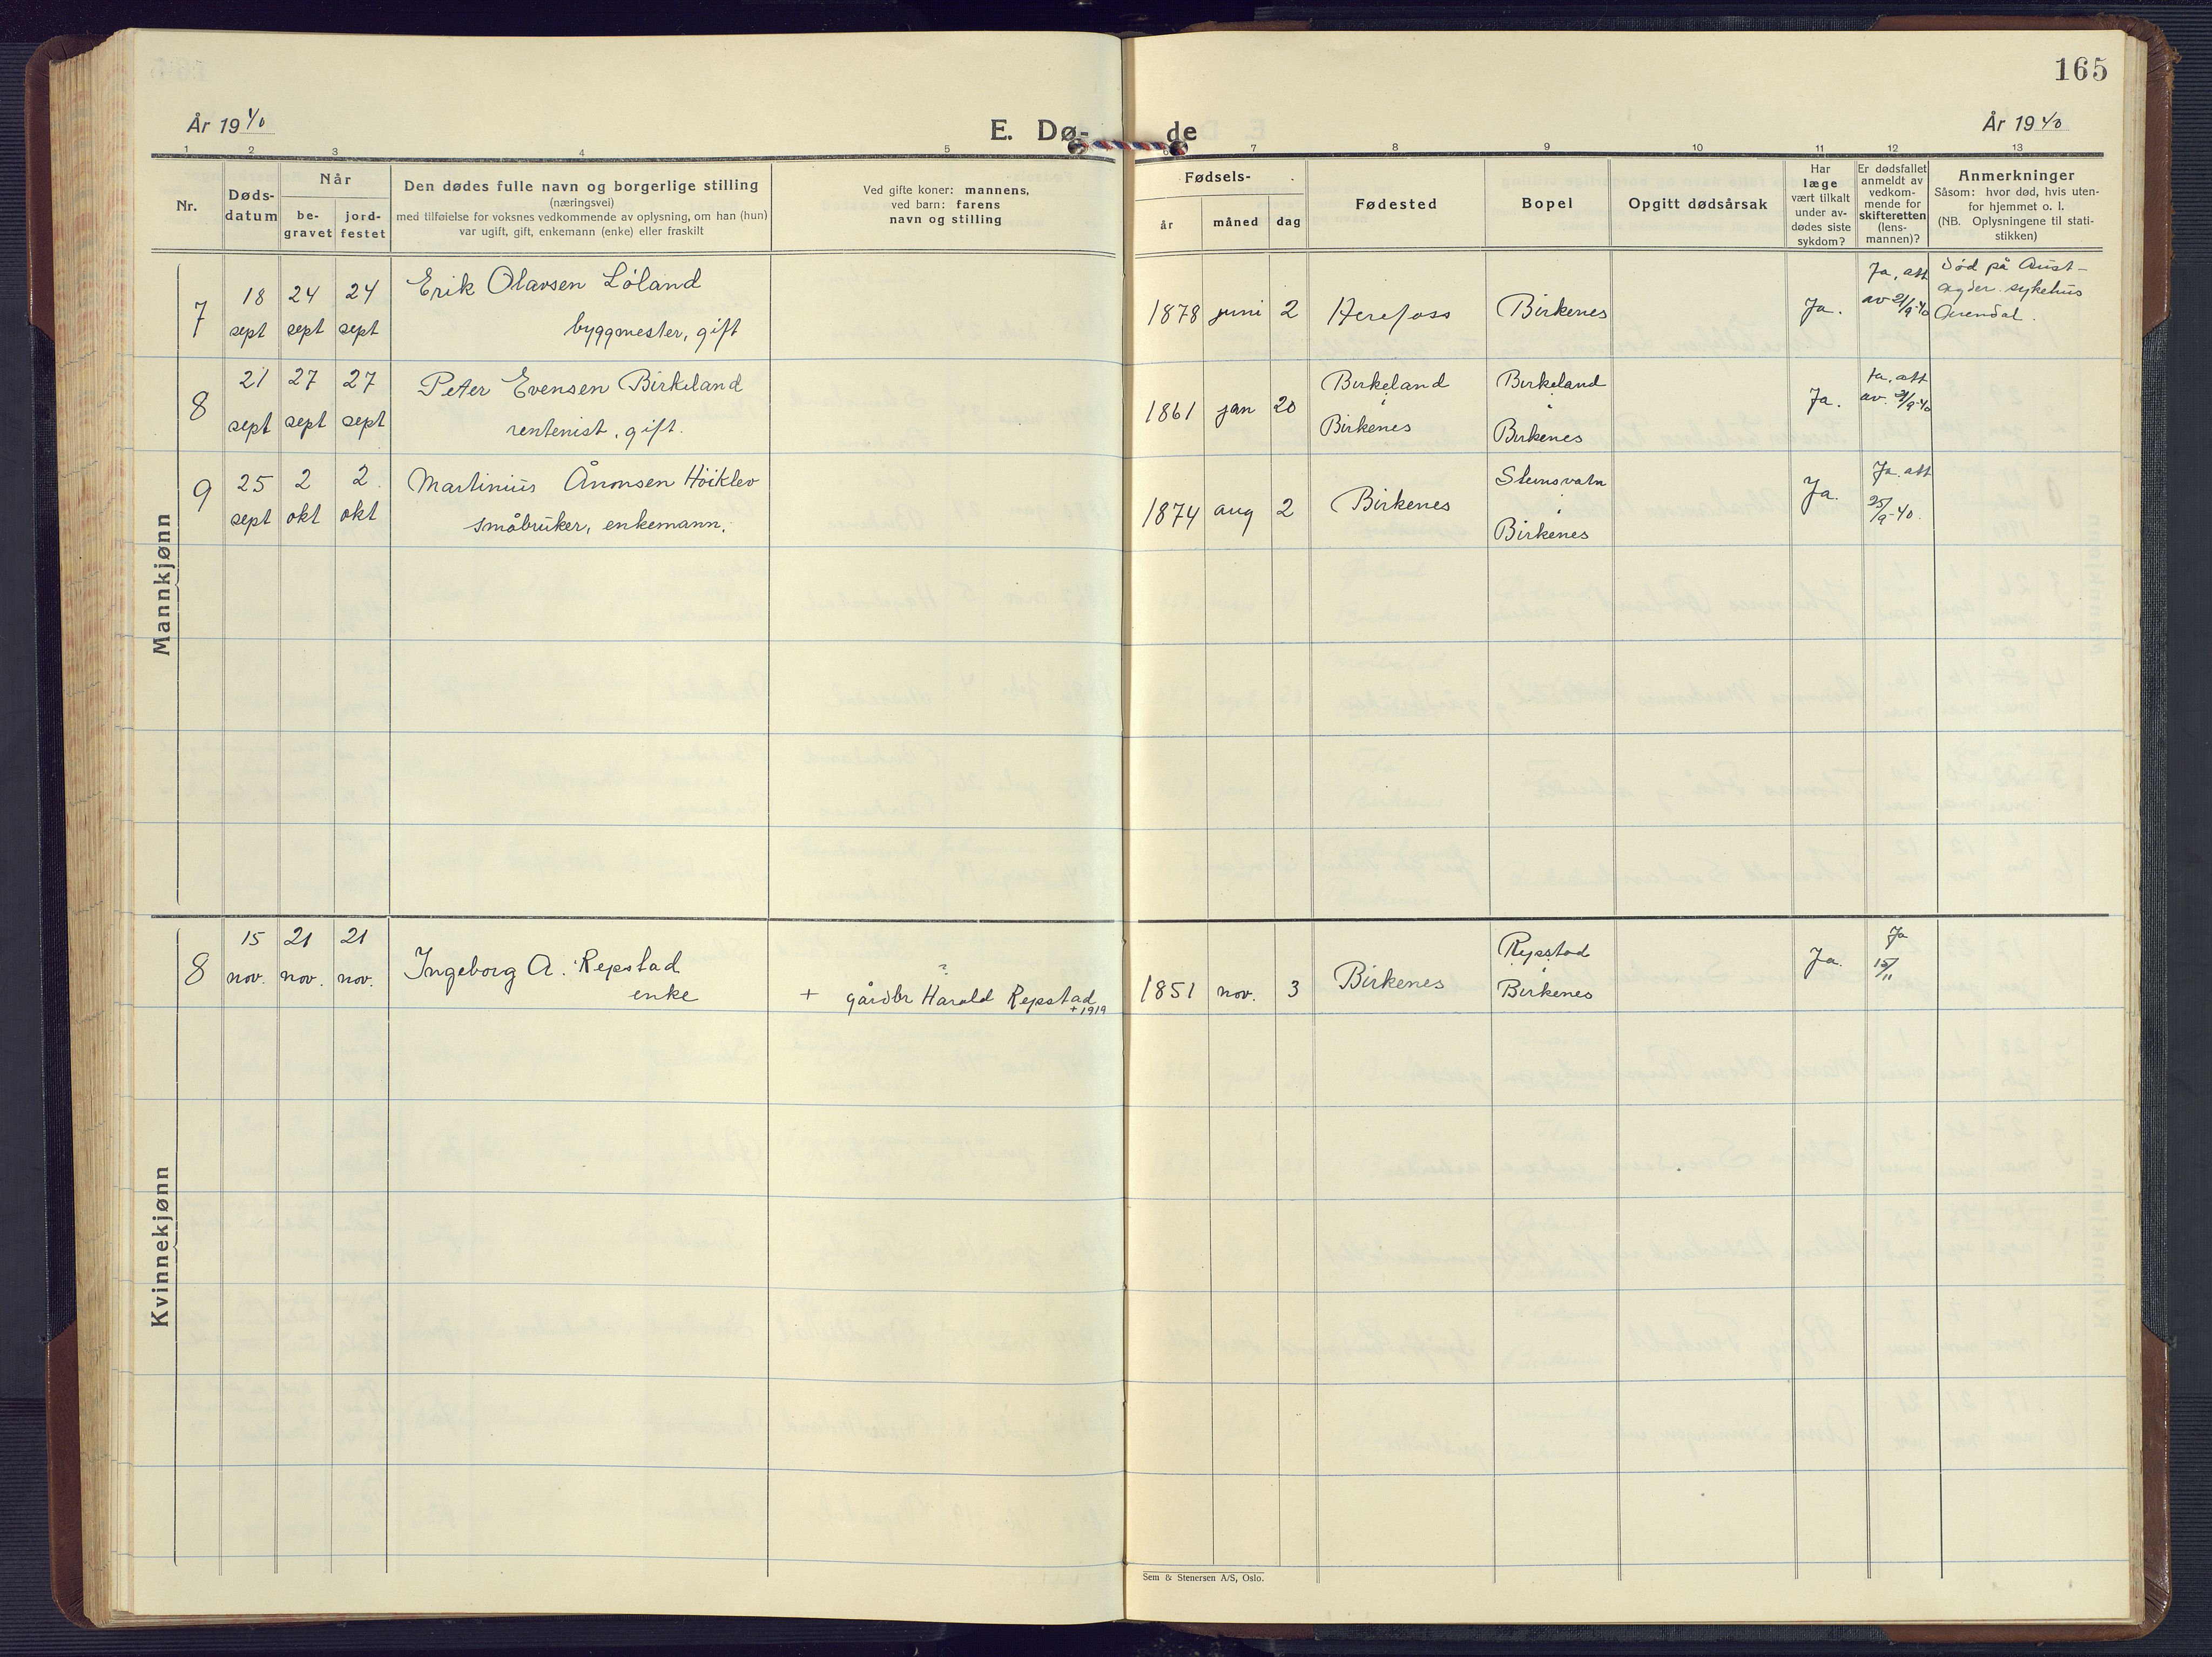 165
År 1940
E. Dø-
de
År 1940
1 2 3 4 5 6 7 8 9 10 11 12 13
Nr.
Døds-
datum
Når
be-
gravet
jord-
festet
Den dødes fulle navn og borgerlige stilling
(næringsvei)
med tilføielse for voksnes vedkommende av oplysning, om han (hun)
var ugift, gift, enkemann (enke) eller fraskilt
Ved gifte koner: mannens,
ved barn: farens
navn og stilling
Fødsels-
år måned dag
Fødested
Bopel
Opgitt dødsårsak
Har
læge
vært tilkalt
under av-
dødes siste
sykdom?
Er dødsfallet
anmeldt av
vedkom-
mende for
skifteretten
(lens-
mannen)?
Anmerkninger
Såsom: hvor død, hvis uten-
for hjemmet o. l.
(NB. Oplysningene til stati-
stikken)
Mannkjønn
7
18 sept
24 sept
24 sept
Erik Olavsen Løland
byggmester, gift
1878 juni 2
Herefoss
Birkenes
Ja.
Ja, att
av 21/9-40
Død på Aust-
agder sykehus
Arendal.
8
21 sept
27 sept
27 sept
Peter Evensen Birkeland
rentenist, gift.
1861 jan 20
Birkeland
i
Birkenes
Birkeland
i
Birkenes
Ja.
Ja, att
av. 21/9-40
9
25 sept
2 okt
2. okt
Martinius Ånonsen Höiklev
småbruker, enkemann.
1874 aug 2
Birkenes
Steinsvatn
i
Birkenes
Ja.
Ja. att
25/9-40.
Kvinnekjønn
8
15 nov.
21 nov.
21 nov.
Ingeborg A. Repstad
enke
?
+ gårdbr Harald Repstad
+ 1919
1851 nov. 3
Birkenes
Repstad
i
Birkenes
Ja.
Ja
15/11
Sem & Stenersen A/S, Oslo.